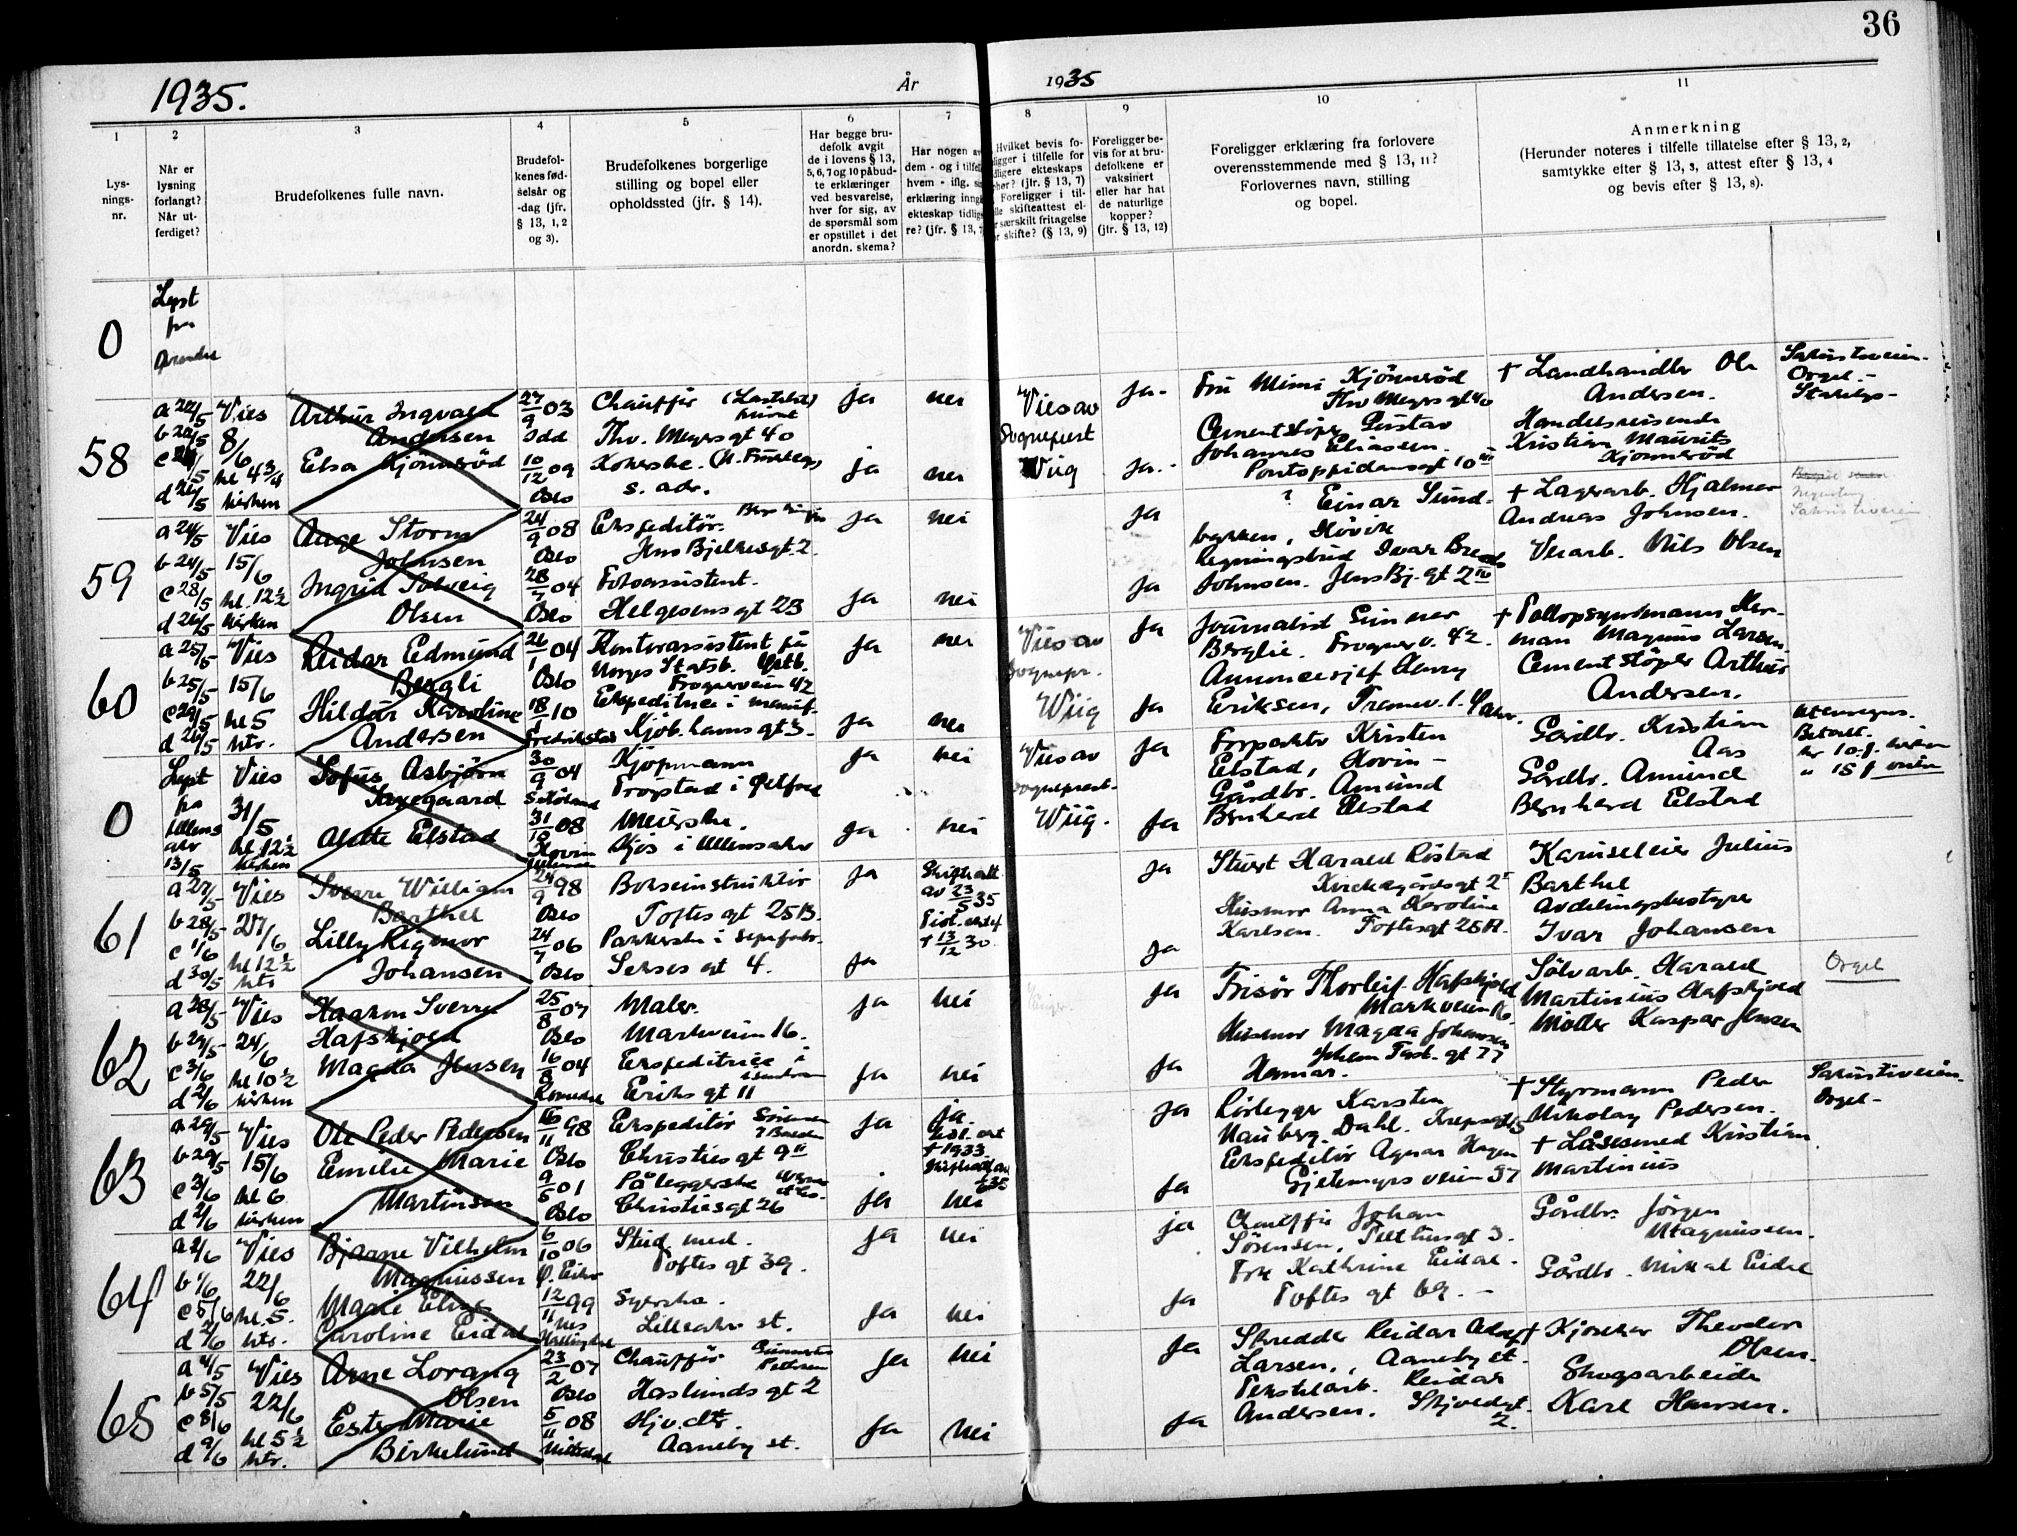 36
1935.
År
1935
1
2
3
4
5
6
7
8
9
10
11
Lys-
nings-
nr.
Når er
lysning
forlangt?
Når ut-
ferdiget?
Brudefolkenes fulle navn.
Brudefol-
kenes fød-
selsår og
-dag (jfr.
§ 13, 1, 2
og 3).
Brudefolkenes borgerlige
stilling og bopel eller
opholdssted (jfr. § 14).
Har begge bru-
defolk avgit
de i lovens § 13,
5, 6, 7 og 10 påbud-
te erklæringer
ved besvarelse,
hver for sig, av
de spørsmål som
er opstillet i det
anordn. skema?
Har nogen av
dem - og i tilfelle
hvem - iflg. si
erklæring inng
ekteskap tidlig
re? (jfr. § 13, 7
Hvilket bevis fo-
ligger i tilfelle for
dligere ekteskaps
hør? (jfr. § 13, 7)
Foreligger i til-
lle skifteattest el-
r særskilt fritagelse
r skifte? (§ 13, 9)
Foreligger be-
vis for at bru-
defolkene er
vaksinert
eller har hat
de naturlige
kopper?
(jfr. § 13, 12)
Foreligger erklæring fra forlovere
overensstemmende med § 13, 11?
Forlovernes navn, stilling
og bopel.
Anmerkning
(Herunder noteres i tilfelle tillatelse efter § 13, 2,
samtykke efter § 13, 3, attest efter § 13, 4
og bevis efter § 13, 8).
0
Lyst
fra
58
a 22/5 Vies
8/6
kl 4 3/4
kirken
Arthur Ingvald
Andersen
Elsa Kjønnerød
27/9 03
10/12 09
Oslo
Chauffør
Thv. Meyersgt 40
Kokerske.
s. adr.
ja nei
ja nei
Vies av
Sogneprest
Wiig
ja.
ja.
Fru Mimi Kjønnerød
Thv Meyersgt 40
Cementstøper Gustav
Johannes Eliassen.
Pontoppidansgt 10
† Landhandler Ole
Andersen.
Handelsreisende
Kristian Maurits
Kjønnerød
Sakristiveien.
Orgel.
59
a 24/5 Vies
b 24/5 15/6
c 28/5 kl. 12 1/2
d 26/5 kirken
Aage Storm
Johnsen
Ingrid Solveig
Olsen
24/9 08
Oslo
28/7 04
Oslo
Ekspeditør.
Jens Bjelkesgt. 2
Fotoassistent.
Helgesens gt 23
ja nei
ja nei
ja
ja
Einar Sund-
bakken, Høvik
Regningsbud Ivar
Johnsen. Jens Bj. gt 2
† Lagerarb. Hjalmar
Andreas Johnsen.
Verarb. Nils Olsen
Sakristiveien
60
a 25/5 Vies
b 25/5 15/6
c 29/5 kl 5
d 26/5 ktr.
Reidar Edmund
Bergli
Hildur Karoline
Andersen
26/1 04
Oslo
18/1 10
Fredrikstad
Kontorassistent på
Norges Statsb.
Frognerveien 42
Ekspeditrice i
Kjøb.havns gt 3.
ja nei
ja nei
Vies av
Sognepr.
Wiig
ja
ja
Journalist Gunnar
Berglie. Frognerv. 42.
Annoncesjef Henry
Eriksen,
† Telleopsynsmann Her-
man Magnus Larsen.
Cementstøper Arthur
Andersen.
0
Lyst Vies
fra 31/5
Ullens kl 12 1/2
13/5 kirken
Sofus Asbjørn
Alette Elstad
30/9 04
31/10 08
Hovin
Kjøpmann
Trøgstad i Østfold
Meierske.
Kjos i Ullensaker
ja nei
ja nei
Vies av
Sogneprest
Wiig.
ja
ja
Forpakter Kristen
Elstad, Hovin -
Gårdbr. Amund
Bernhard Elstad
Gårdbr. Kristian
Aas
Gårdbr. Amund
Bernhard Elstad
Betalt.
kr 10 f. kirken
" 15 f veien
61
a 27/5 Vies
b 28/5 27/6
c 1/6 kl 12 1/2
d 30/5 ktr
Sverre William
Barthel
Lilly Rigmor
Johansen
24/9 98
Oslo
24/7 06
Oslo
Bokseinstruktør
Toftes gt 25B.
Pakkerske i
Sekses gt 4.
ja
ja
Skifteatt.
av 23/5 35
† 13/12 30.
ja
ja
Stuert Harald Røstad
Kirkegårdsgt 2
Husmor Anna Karoline
Karlsen. Toftesgt 25
Karuseleier Julius
Barthel
Avdelingsbestyrer
Ivar Johansen
62
a 28/5 Vies
b 29/5 24/6
c 3/6 kl 10 1/2
d 2/6 kirken
Haakon Sverre
Hafskjold
Magda Jensen
25/8 07
Oslo
16/8 04
Romedal
Maler.
Markveien 16.
Ekspeditrice i
Eriks gt 11
ja nei
ja nei
ja
ja
Frisør Thorleif Hafskjold
Markveien 16
Husmor Magda Johansen
Hamar.
Sølvarb. Harald
Martinius Hafskjold
Møller Kaspar Jensen
Orgel
63
a 29/5 Vies
b 29/5 15/6
c 3/6 kl 6
d 2/6 kirken
Ole Peder Pedersen
Emilie Marie
Martinsen
16/11 98
Oslo
9/6 01
Oslo
Ekspeditør
Christies gt 9
Påleggerske
Christies gt 26
ja ja
† 1933.
ja nei
ja
ja
Rørlegger Karsten
Nauberg. Dahl.
Ekspeditør Agnar Hagen
Gjetemyrsveien 37
† Styrmann Peder
Nikolay Pedersen.
† Låsesmed Kristian
Martinius
Sakristiveien.
Orgel-
64
a 2/6 Vies
b 1/6 22/6
c 5/6 kl. 5.
d 2/6 ktr.
Bjarne Vilhelm
Magnussen
Marie Elise
Caroline Eidal
6/10 06
Ø. Eiker
12/11 99
Nes
Hallingdal
Stud. med.
Toftes gt 39.
Syerske.
Lilleaker st.
ja nei
ja nei
ja
ja
Chauffør Johan
Sørensen, Tilthusgt 3.
Frk Kathrine Eidal.
Toftes gt 69.
Gårdbr. Jørgen
Magnussen.
Gårdbr. Mikal Eidal
65
a 4/5 Vies
b 5/5 22/6
c 8/6 kl 5 1/2
d 9/6 ktr.
Arne Lorang
Olsen
Ester Marie
Birkelund
23/2 07
Oslo
5/11 08
Nittedal
Chauffør
Haslunds gt 2
Hjv. dtr.
Aaneby st.
ja nei
ja nei
ja
ja
Skredder Reidar Adolf
Larsen., Aaneby st.
Tekstilarb. Reidar
Andersen. Skjoldgt.
2.
† Kjøsker Theodor
Olsen.
Skogsarbeider
Karl Hansen.